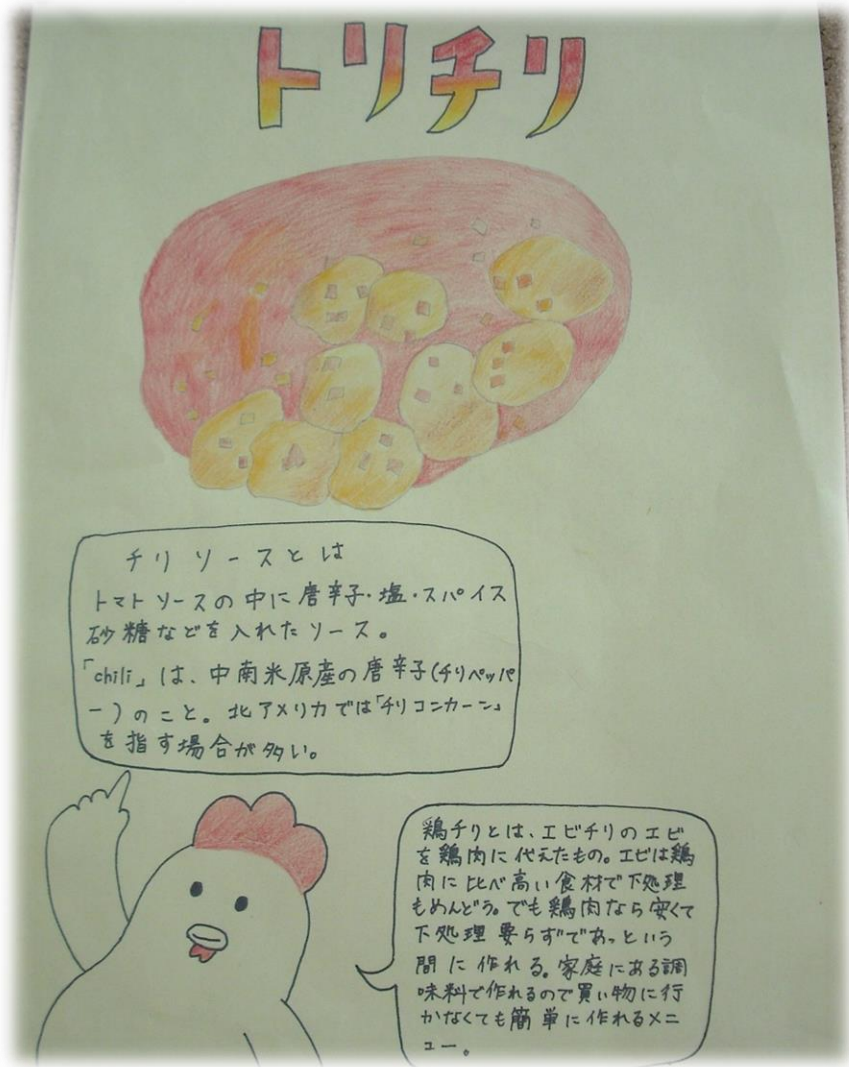 トリチリ
チリソースとは
トマトソースの中に唐辛子・塩・スパイス
砂糖などを入れたソース。
「chili」は、中南米原産の唐辛子(チリペッパ
ー)のこと。北アメリカでは「チリコンカーン」
を指す場合が多い。
鶏チリとは、エビチリのエビ
を鶏肉に代えたもの。エビは鶏
肉に比べ高い食材で下処理
もめんどう。でも鶏肉なら安くて
下処理要らずであっという
間に作れる。家庭にある調
味料で作れるので買い物に行
かなくても簡単に作れるメニ
ュー。